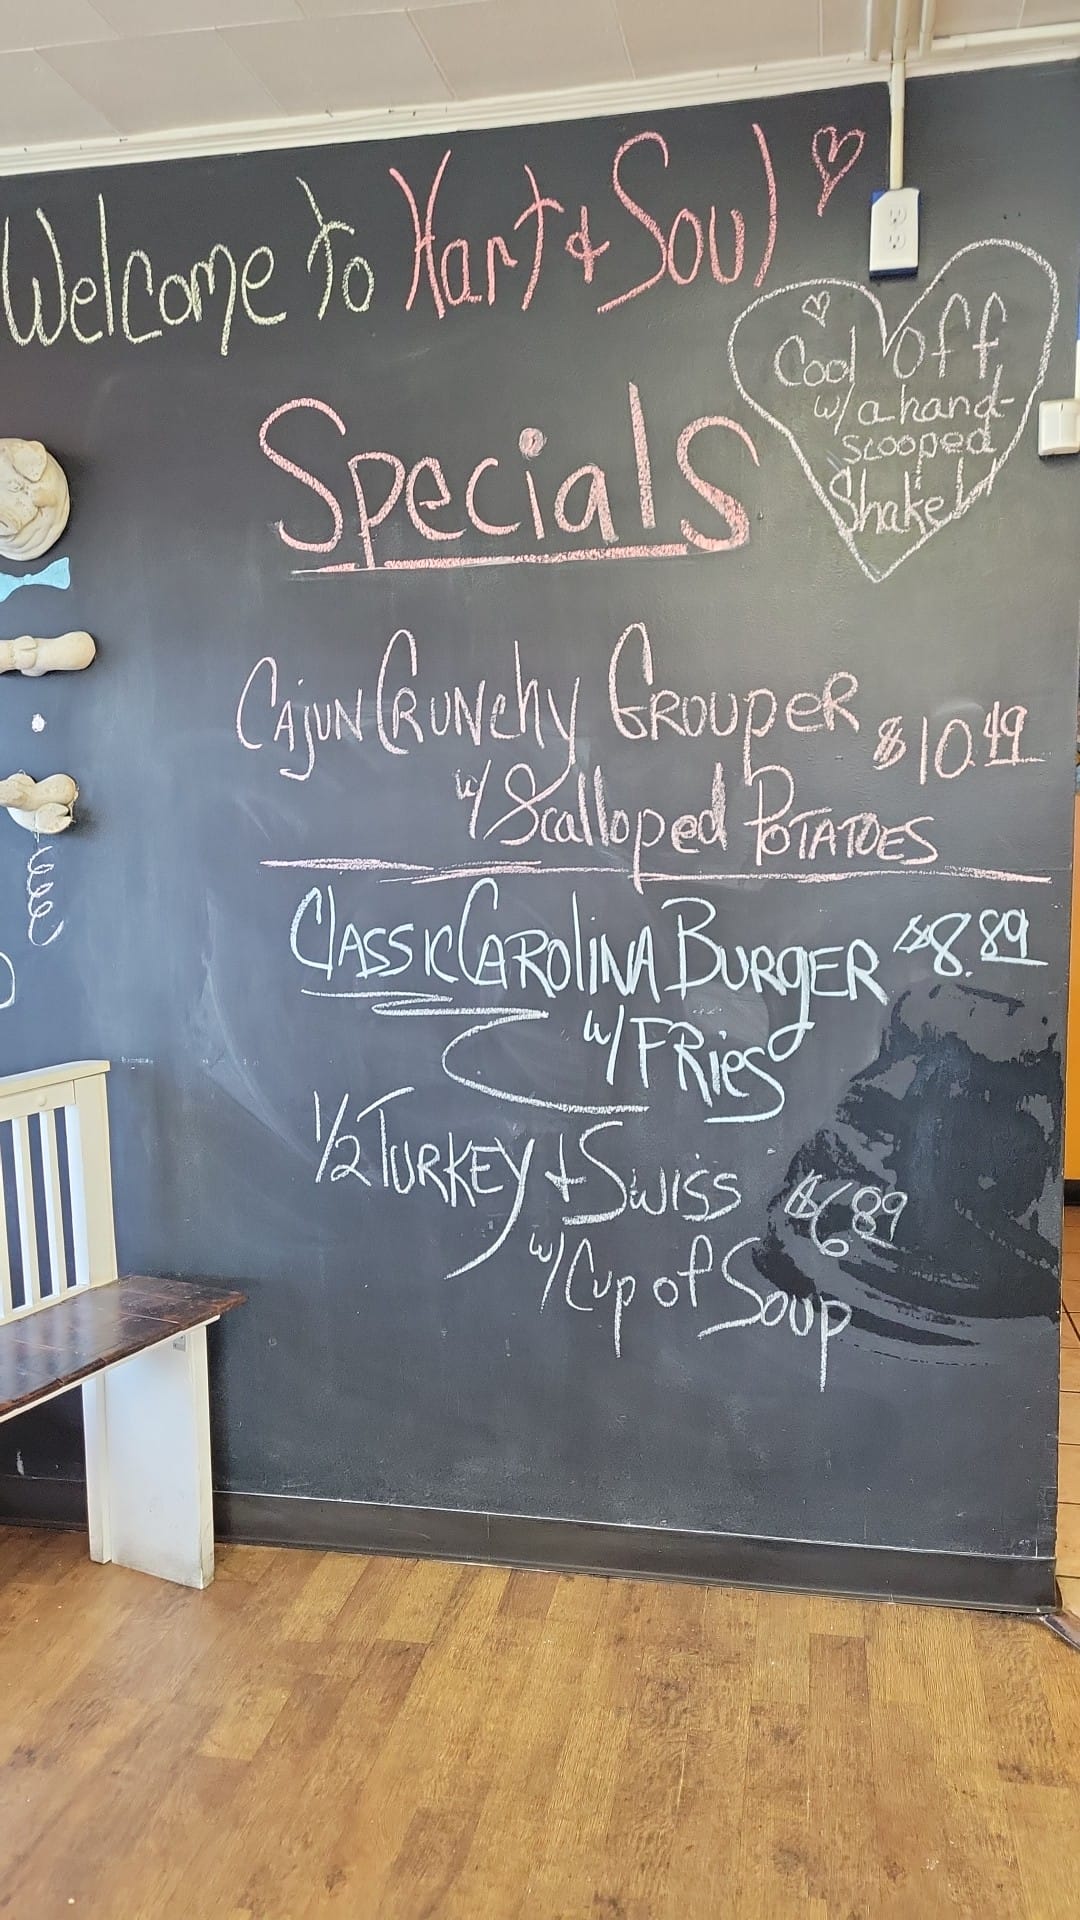 Welcome To Hart & Soul
Cool off
w/ a hand-
scooped
Shake!
Specials
CAJUN CRUNchy GROUPER $10.49
w/ Scalloped POTATOES
CLASSIC CAROlINA BURGER $8.89
w/ FRies
1/2 TURKEY + SWISS $6.89
w/ Cup of Soup